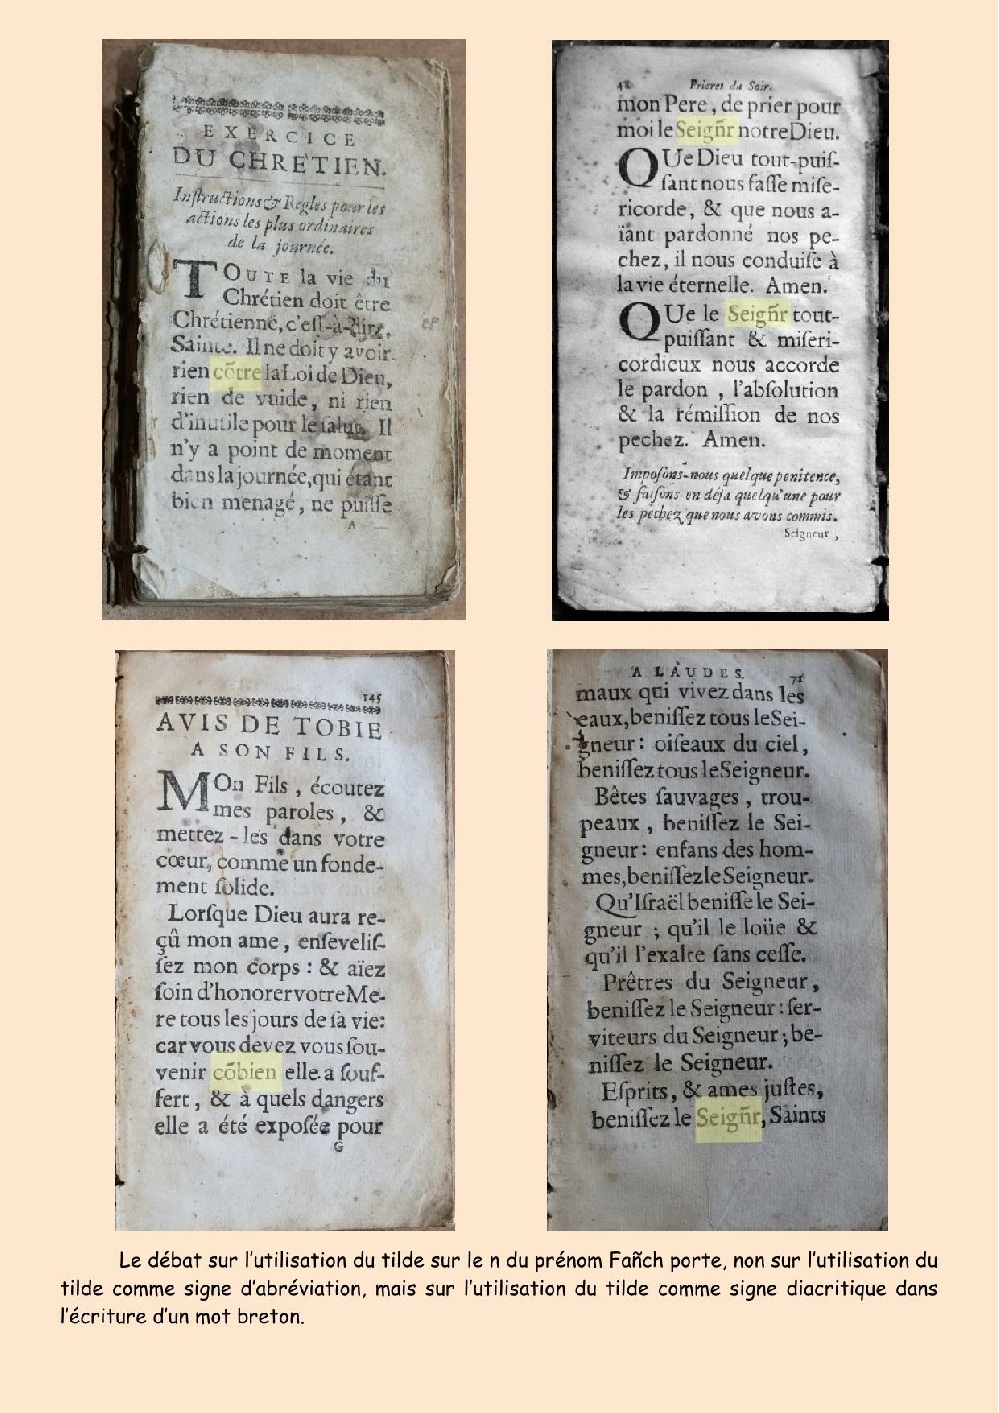 EXERCICE
DU CHRETIEN.
Inſtructions & Regles pour les
actions les plus ordinaires
de la journée.
TOUTE la vie du
Chrétien doit être
Chrétienne, c'eſt-à-dire,
Sainte. Il ne doit y avoir
rien cõtre la Loi de Dieu,
rien de vuide, ni rien
d'inutile pour le ſalut. Il
n'y a point de moment
dans la journée, qui étant
bien menagé, ne puiſſe
A
48 Prieres du Soir.
mon Pere, de prier pour
moi le Seigñr notre Dieu.
QUe Dieu tout-puiſ-
ſant nous faſſe miſe-
ricorde, & que nous a-
ïant pardonné nos pe-
chez, il nous conduiſe à
la vie éternelle. Amen.
QUe le Seigñr tout-
puiſſant & miſeri-
cordieux nous accorde
le pardon, l'abſolution
& la rémiſſion de nos
pechez. Amen.
Impoſons-nous quelque penitence,
& faiſons en déja quelqu'une pour
les pechez que nous avons commis.
Seigneur,
145
AVIS DE TOBIE
A SON FILS.
MOn Fils, écoutez
mes paroles, &
mettez-les dans votre
cœur, comme un fonde-
ment ſolide.
Lorſque Dieu aura re-
çû mon ame, enſeveliſ-
ſez mon corps : & aïez
ſoin d'honorer votre Me-
re tous les jours de ſa vie:
car vous devez vous ſou-
venir cõbien elle a ſouf-
fert, & à quels dangers
elle a été expoſée pour
G
A LAUDES. 71
maux qui vivez dans les
eaux, beniſſez tous le Sei-
gneur: oiſeaux du ciel,
beniſſez tous le Seigneur.
Bêtes ſauvages, trou-
peaux, beniſſez le Sei-
gneur: enfans des hom-
mes, beniſſez le Seigneur.
Qu'Iſraël beniſſe le Sei-
gneur ; qu'il le loüe &
qu'il l'exalte ſans ceſſe.
Prêtres du Seigneur,
beniſſez le Seigneur : ſer-
viteurs du Seigneur ; be-
niſſez le Seigneur.
Eſprits, & ames juſtes,
beniſſez le Seigñr, Saints
Le débat sur l'utilisation du tilde sur le n du prénom Fañch porte, non sur l'utilisation du
tilde comme signe d'abréviation, mais sur l'utilisation du tilde comme signe diacritique dans
l'écriture d'un mot breton.